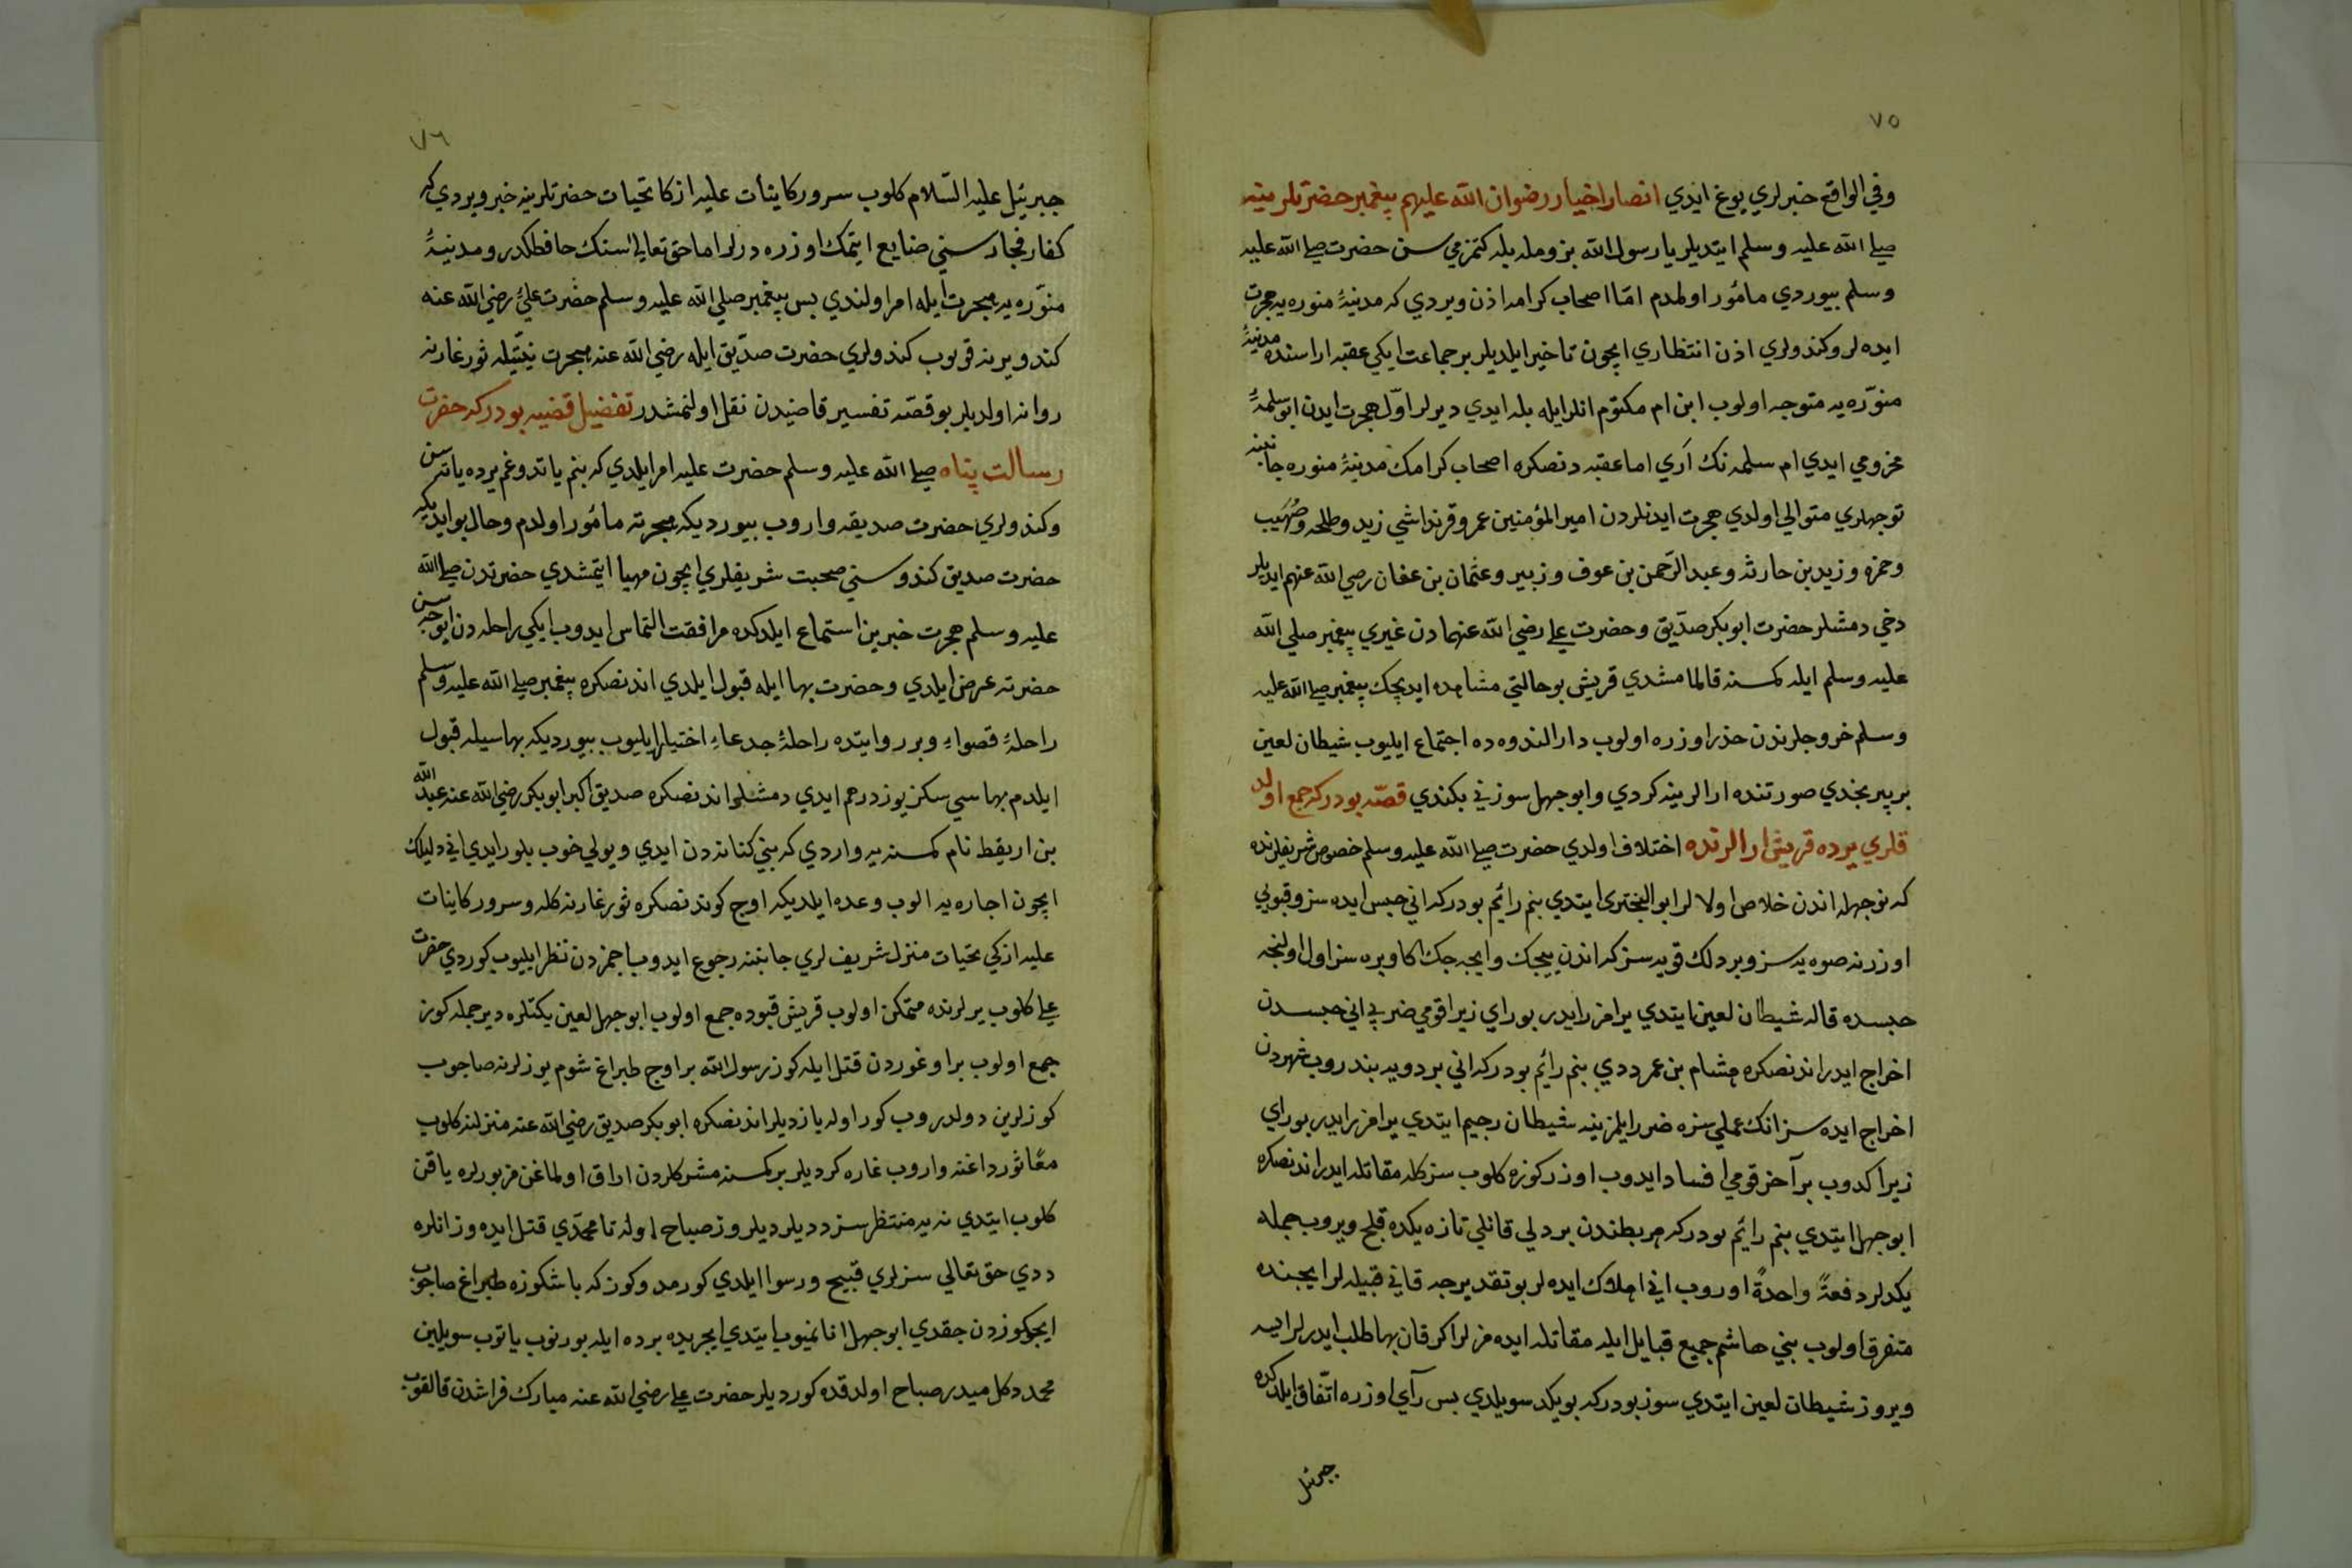 ٧٥
وفي الواقع خبرلري يوغ ايدي انصار اخيار رضوان الله عليهم پيغمبر حضرتلرينه
صلي الله عليه وسلم ايتديلر يا رسول الله بزومله بله كتمزمي سن حضرت صلي الله عليه
وسلم بيوردي مأمور اولمدم امّا اصحاب كرامه اذن ويردي كه مدينۀ منوره يه هجرت
ايده لر وكندولري اذن انتظاري ايچون تاخير ايلديلر بر جماعت ايكي عقبه اراسنده مدينۀ
منوّره يه متوجه اولوب ابن ام مكتوم انلر ايله بله ايدي ديرلر اوّل هجرت ايدن ابو سلمۀ
مخزومي ايدي ام سلمه نك اري اما عقبه دنصكره اصحاب كرامك مدينۀ منوره جانبنه
توجهلري متوالي اولدي هجرت ايدنلردن امير المؤمنين عمر وقرنداشي زيد وطلحه وصُهَيب
وحمزه وزيد بن حارثه وعبد الرّحمن بن عوف وزبير وعثمان بن عفان رضي الله عنهم ايديلر
دخي دمشلر حضرت ابو بكر صدّيق وحضرت علي رضي الله عنهمادن غيري پيغمبر صلي الله
عليه وسلم ايله كمسنه قالمامشدي قريش بو حالتي مشاهده ايديجك پيغمبر صلي الله عليه
وسلم خروجلرندن حذر اوزره اولوب دار الندوه ده اجتماع ايليوب شيطان لعين
بر پير نجدي صورتنده ارالرينه كردي وابو جهل سوزني بكندي قصّه بودركه جمع اولد
قلري يرده قريش ارالرنده اختلاف اولدي حضرت صلي الله عليه وسلم خصوص شريفلرنده
كه نوجهله اندن خلاص اولالر ابو البختري ايتدي بنم رائم بودركه اني حبس ايده سز وقبوبي
اوزرنه صوه يه سز وبر دلك قويه سزكه اندن ييجك وايجه جك اكا ويره سز اول اولنجه
حبسده قاله شيطان لعين ايتدي يرامز رايدر بو راي زيرا قومي ضربي اني حبسدن
اخراج ايدر اندنصكره هشام بن عمر ددي بنم رائم بودركه اني بر دويه بندروب شهردن
اخراج ايده سز انك عملي سزه ضرر ايلمزينه شيطان رجيم ايتدي يرامز رايدر بو راي
زيرا كدوب بر آخر قومي افساد ايدوب اوزركوزه كلوب سزكله مقاتله ايدر اندنصكره
ابو جهل ايتدي بنم رائم بودركه هر بطندن بر دلي قانلي تازه يكده قلج ويروب جمله
يكدلر دفعةً واحدةً اوروب اني اهلاك ايده لر بو تقديرجه قاني قبيله لر ايچنده
متفرق اولوب بني هاشم جميع قبايل ايله مقاتله ايده مزلر اكر قان بها طلب ايدرلر ايسه
ويروز شيطان لعين ايتدي سوز بودركه بو يكد سويلدي بس راي اوزره اتّفاق ايلدكده
جبرئيل
٧٦
جبرئيل عليه السّلام كلوب سرور كاينات عليه ازكا تحيات حضرتلرينه خبر ويردي كه
كفار فجار سني ضايع ايتمك اوزره درلر اما حق تعالى سنك حافظكدر ومدينۀ
منوّره يه هجرت ايله امر اولندي بس پيغمبر صلي الله عليه وسلم حضرت عليّ رضي الله عنه
كندو يرينه قويوب كندولري حضرت صدّيق ايله رضي الله عنه هجرت نيتيله ثور غارنه
روانه اولديلر بو قصّه تفسير قاضيدن نقل اولنمشدر تفضيل قضيه بودركه حضرت
رسالت پناه صلي الله عليه وسلم حضرت عليه امر ايلدي كه بنم ياتدوغم يرده ياته سن
وكندولري حضرت صديقه واروب بيورديكه هجرته مأمور اولدم وحال بو ايديكه
حضرت صديق كندوسني صحبت شريفلري ايچون مهيا ايتمشدي حضرتدن صلي الله
عليه وسلم هجرت خبرين استماع ايلدكده مرافقت التماس ايدوب ايكي راحله دن ايوجه سن
حضرته عرض ايلدي وحضرت بها ايله قبول ايلدي اندنصكره پيغمبر صلي الله عليه وسلم
راحلۀ قصواء وبر روايتده راحلۀ جدعاء اختيار ايليوب بيورديكه بهاسيله قبول
ايلدم بهاسي سكز يوز درهم ايدي دمشلر اندنصكره صديق اكبر ابو بكر رضي الله عنه عبد الله
بن اريقط نام كمسنه يه واردي كه بني كنانه دن ايدي ويولي خوب بلور ايدي اني دليللك
ايچون اجاره يه الوب وعده ايلديكه اوج كوندنصكره ثور غارنه كله وسرور كاينات
عليه ازكي تحيات منزل شريفلري جانبنه رجوع ايدوب باجمزدن نظر ايليوب كوردي حضرت
علي كلوب يرلرنده متمكن اولوب قريش قپوده جمع اولوب ابو جهل لعين يكتلره دير جمله كوز
جمع اولوب بر اوغوردن قتل ايله كوز رسول الله بر اوج طپراغ شوم يوزلرنه صاچوب
كوزلرين دولدروب كور اوله يازديلر اندنصكره ابو بكر صديق رضي الله عنه منزلنه كلوب
معًا ثور داغنه واروب غاره كرديلر بر كمسنه مشركلردن اراق اولماغن مزبورلره ياقن
كلوب ايتدي نه يه منتظرسز دديلر ديلروز صباح اوله تا محمّدي قتل ايده وز انلره
ددي حق تعالى سزلري قبيح ورسوا ايلدي كورمدوكوز كه باشكوزه طپراغ صاچوب
ايجوكوزدن چقدي ابو جهل انانميوب ايتدي ايچريده برده ايله بورنوب ياتوب سويلين
محمد دكلميدر صباح اولدقده كورديلر حضرت علي رضي الله عنه مبارك فراشدن قالقوب